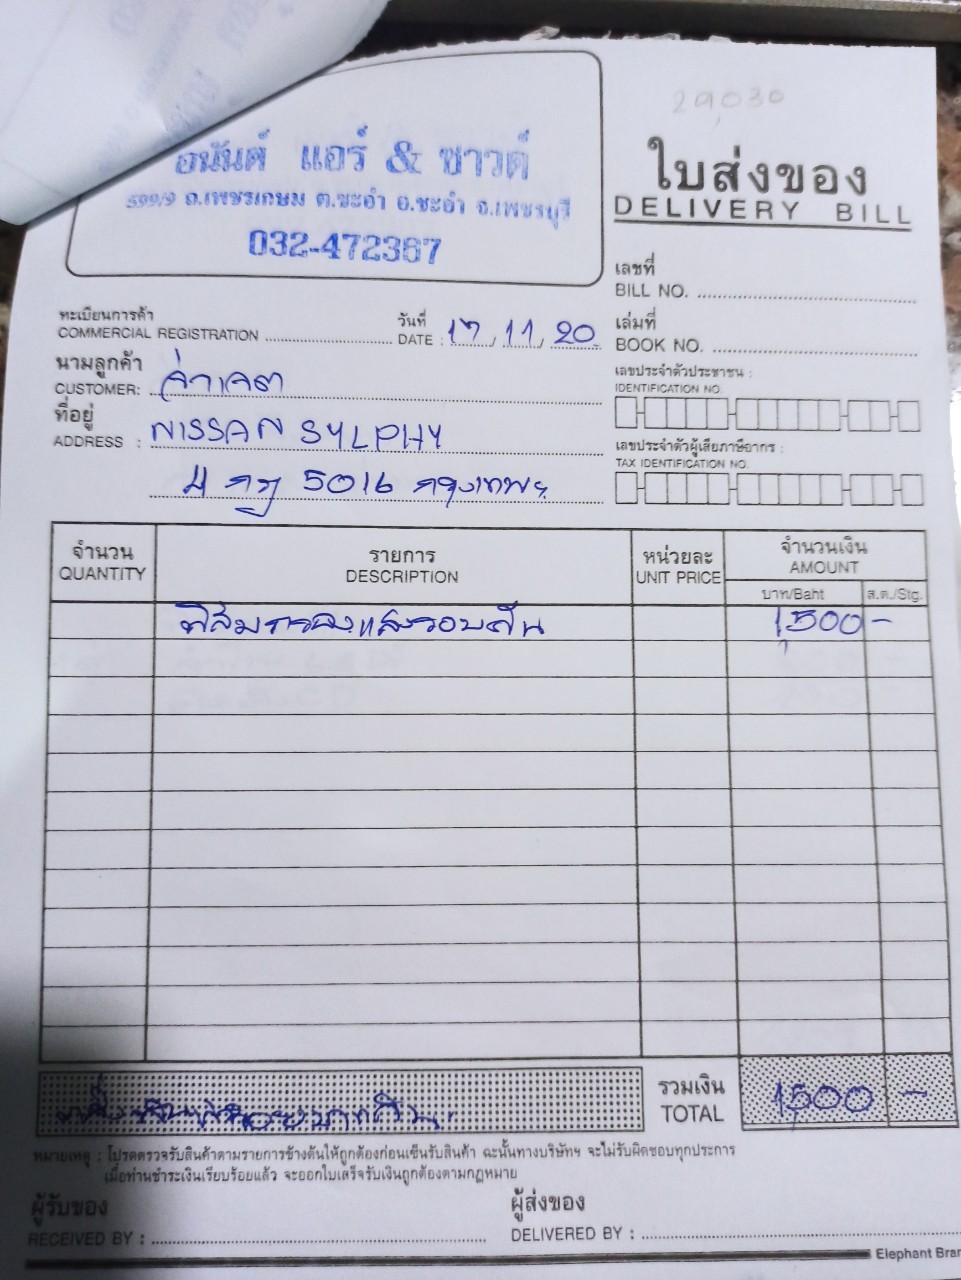 29,030
อนันต์ แอร์ & ซาวด์
599/9 ถ.เพชรเกษม ต.ชะอำ อ.ชะอำ จ.เพชรบุรี
032-472367
ใบส่งของ
DELIVERY BILL
เลขที่
BILL NO.
ทะเบียนการค้า
COMMERCIAL REGISTRATION
วันที่
DATE : 17, 11, 20
เล่มที่
BOOK NO.
นามลูกค้า
CUSTOMER:
เลขประจำตัวประชาชน :
IDENTIFICATION NO.
ที่อยู่
ADDRESS : NISSAN SYLPHY
4 กฎ 5016 กรุงเทพฯ
เลขประจำตัวผู้เสียภาษีอากร :
TAX IDENTIFICATION NO.
จำนวน
QUANTITY
รายการ
DESCRIPTION
หน่วยละ
UNIT PRICE
จำนวนเงิน
AMOUNT
บาท/Baht ส.ต./Stg.
ฟิล์มกรองแสงรอบคัน 1,500 -
รวมเงิน
TOTAL 1,500 -
หมายเหตุ : โปรดตรวจรับสินค้าตามรายการข้างต้นให้ถูกต้องก่อนเซ็นรับสินค้า ฉะนั้นทางบริษัทฯ จะไม่รับผิดชอบทุกประการ
เมื่อท่านชำระเงินเรียบร้อยแล้ว จะออกใบเสร็จรับเงินถูกต้องตามกฎหมาย
ผู้รับของ
RECEIVED BY :
ผู้ส่งของ
DELIVERED BY :
Elephant Bran